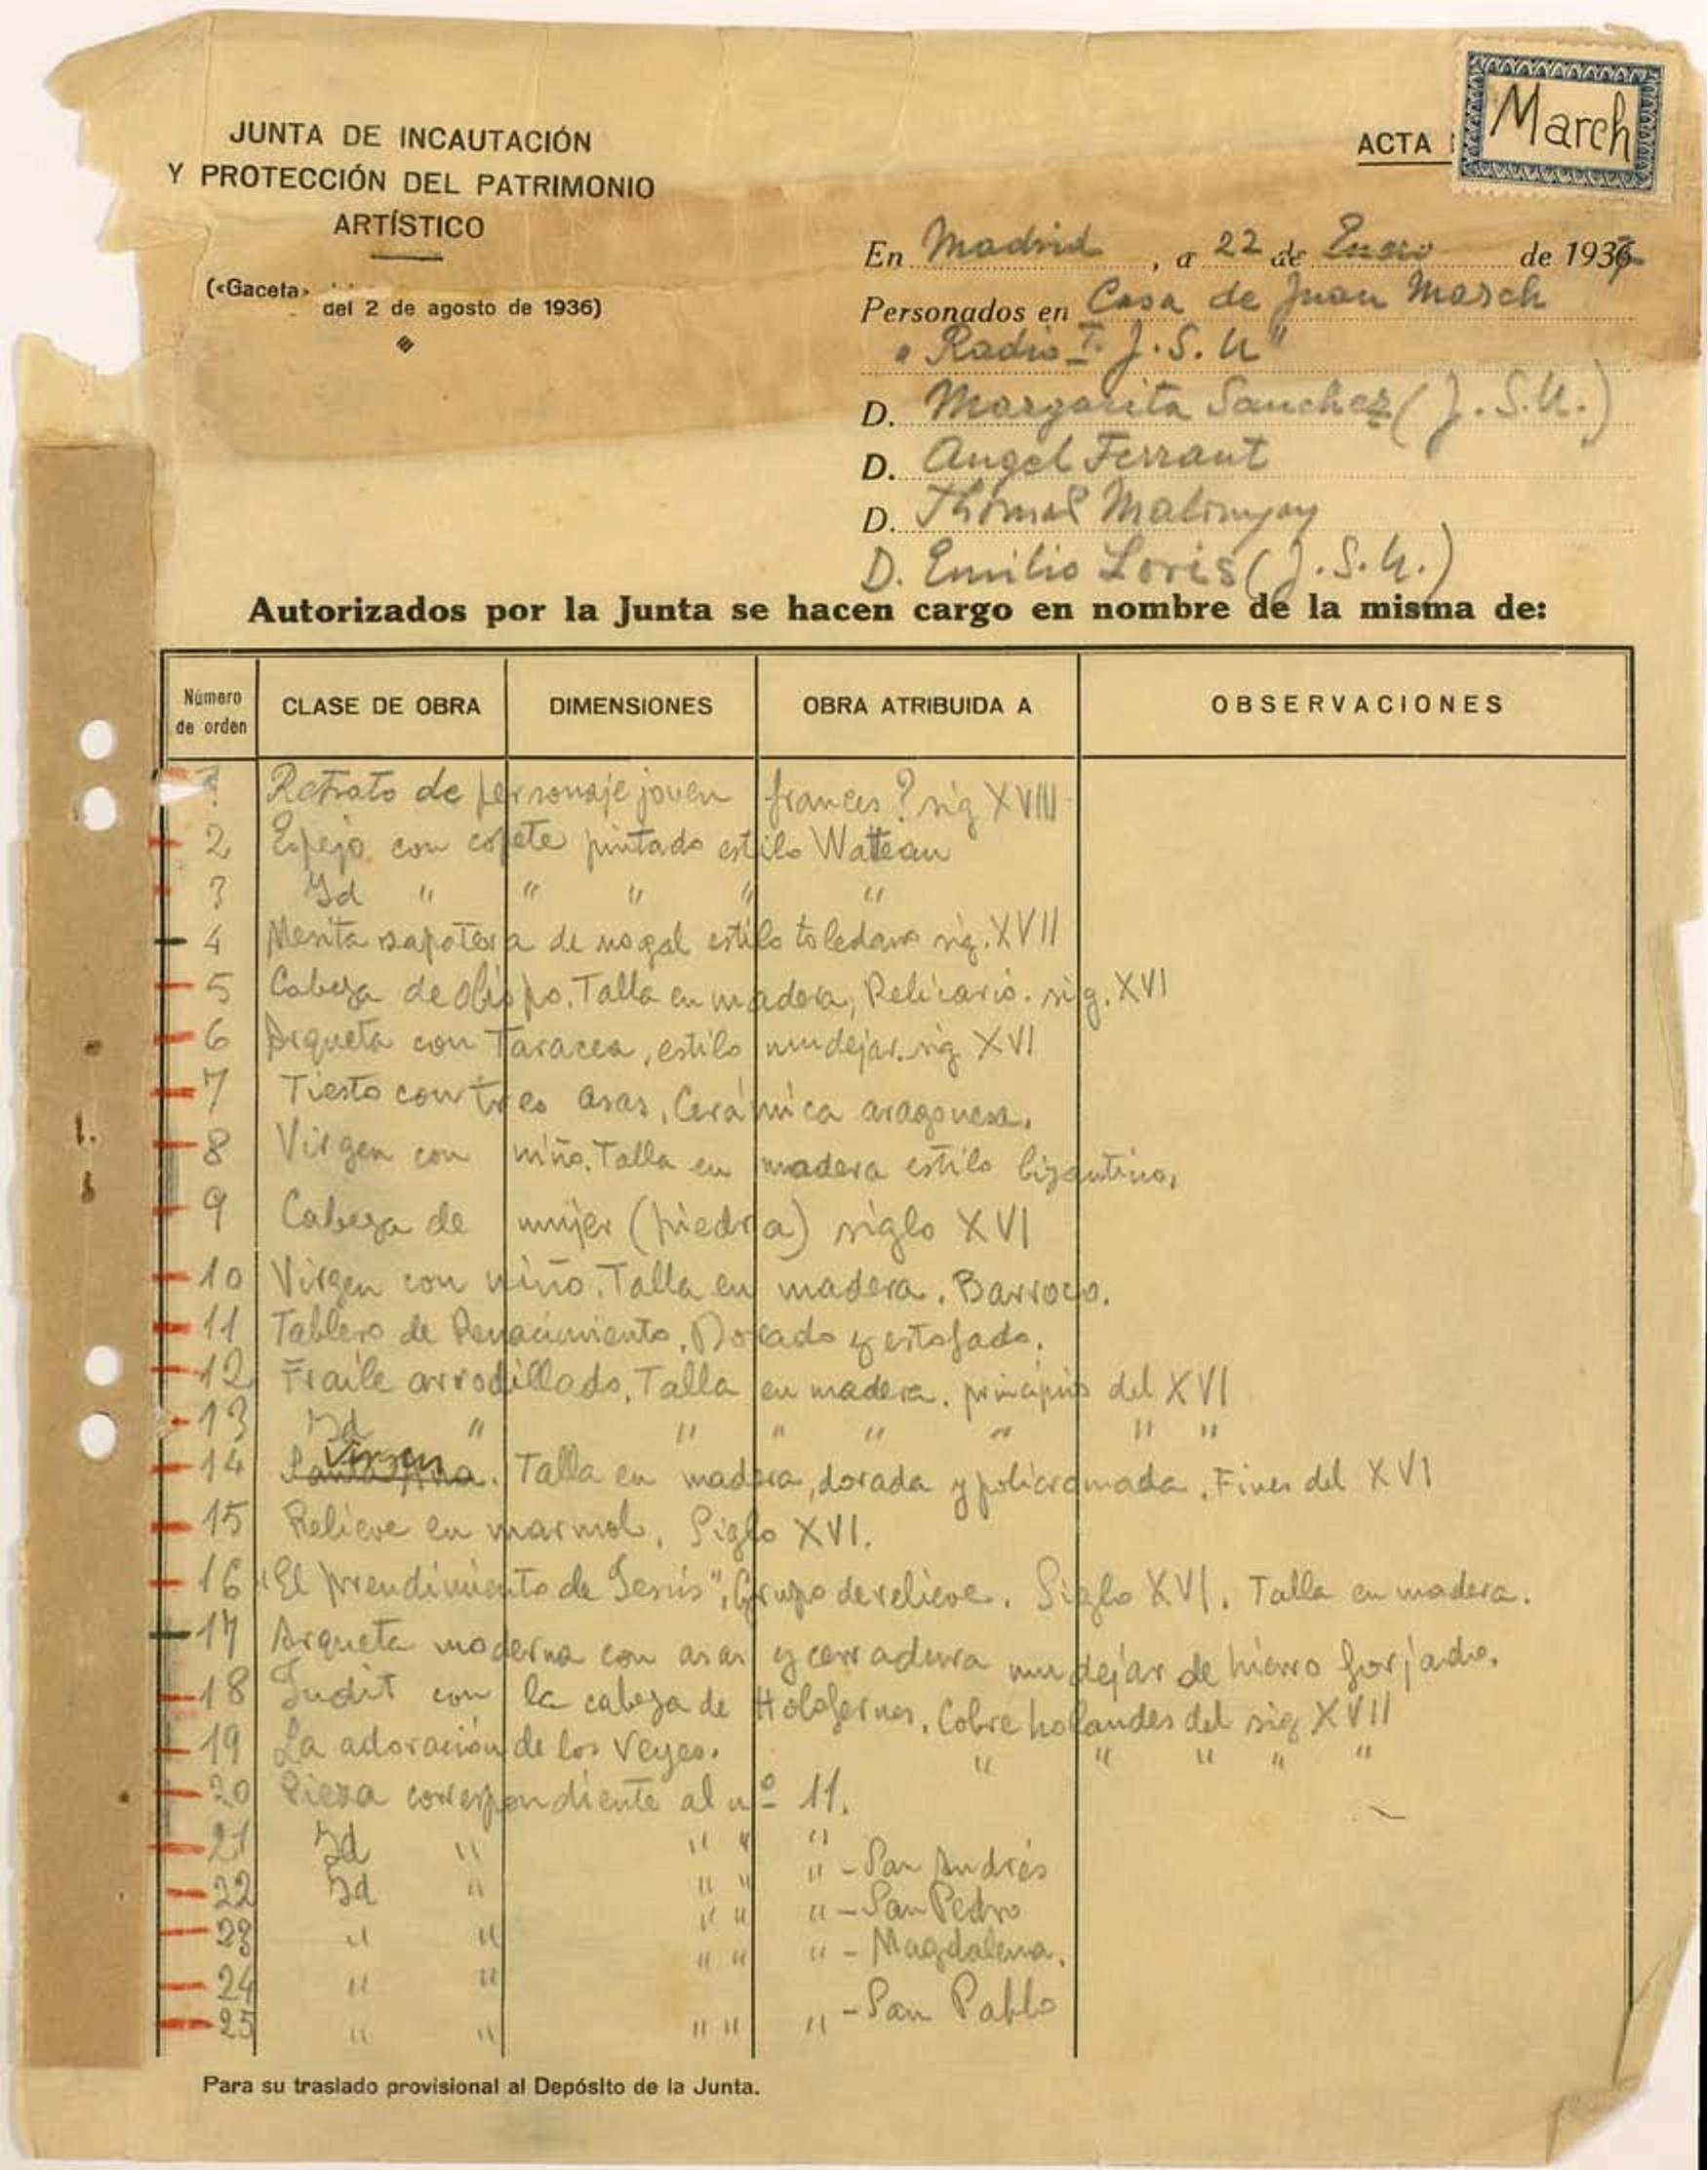 JUNTA DE INCAUTACIÓN
Y PROTECCIÓN DEL PATRIMONIO
ARTÍSTICO
(«Gaceta»
del 2 de agosto de 1936)
ACTA
March
En Madrid, a 22 de Enero de 1937
Personados en Casa de Juan March
"Radio I. J.S.U"
D. Margarita Sanchez (J.S.U.)
D. Angel Ferrant
D. Thomas Malonyay
D. Emilio Loris (J.S.U.)
Autorizados por la Junta se hacen cargo en nombre de la misma de:
Número de orden CLASE DE OBRA DIMENSIONES OBRA ATRIBUIDA A OBSERVACIONES
1 Retrato de personaje joven frances? sig XVIII
2 Espejo con copete pintado estilo Watteau
3 Id " " " " "
4 Mesita zapatera de nogal estilo toledano sig. XVII
5 Cabeza de obispo. Talla en madera, Relicario. sig. XVI
6 Arqueta con Taracea, estilo mudejar. sig XVI
7 Tiesto con tres asas. Cerámica aragonesa.
8 Virgen con niño. Talla en madera estilo bizantino,
9 Cabeza de mujer (piedra) siglo XVI
10 Virgen con niño. Talla en madera. Barroco.
11 Tablero de Renacimiento. Dorado y estofado.
12 Fraile arrodillado, Talla en madera. principios del XVI
13 Id " " " " " " "
14 Virgen Santa Ana. Talla en madera, dorada y policromada. Fines del XVI
15 Relieve en marmol. Siglo XVI.
16 "El prendimiento de Jesús", Grupo de relieve. Siglo XVI. Talla en madera.
17 Arqueta moderna con asas y cerradura mudejar de hierro forjado.
18 Judit con la cabeza de Holofernes. Cobre holandes del sig XVII
19 La adoración de los reyes. " " " " "
20 Pieza correspondiente al nº 11.
21 Id " " " "
22 Id " " " " - San Andrés
23 " " " " " - San Pedro
24 " " " " " - Magdalena.
25 " " " " " - San Pablo
Para su traslado provisional al Depósito de la Junta.